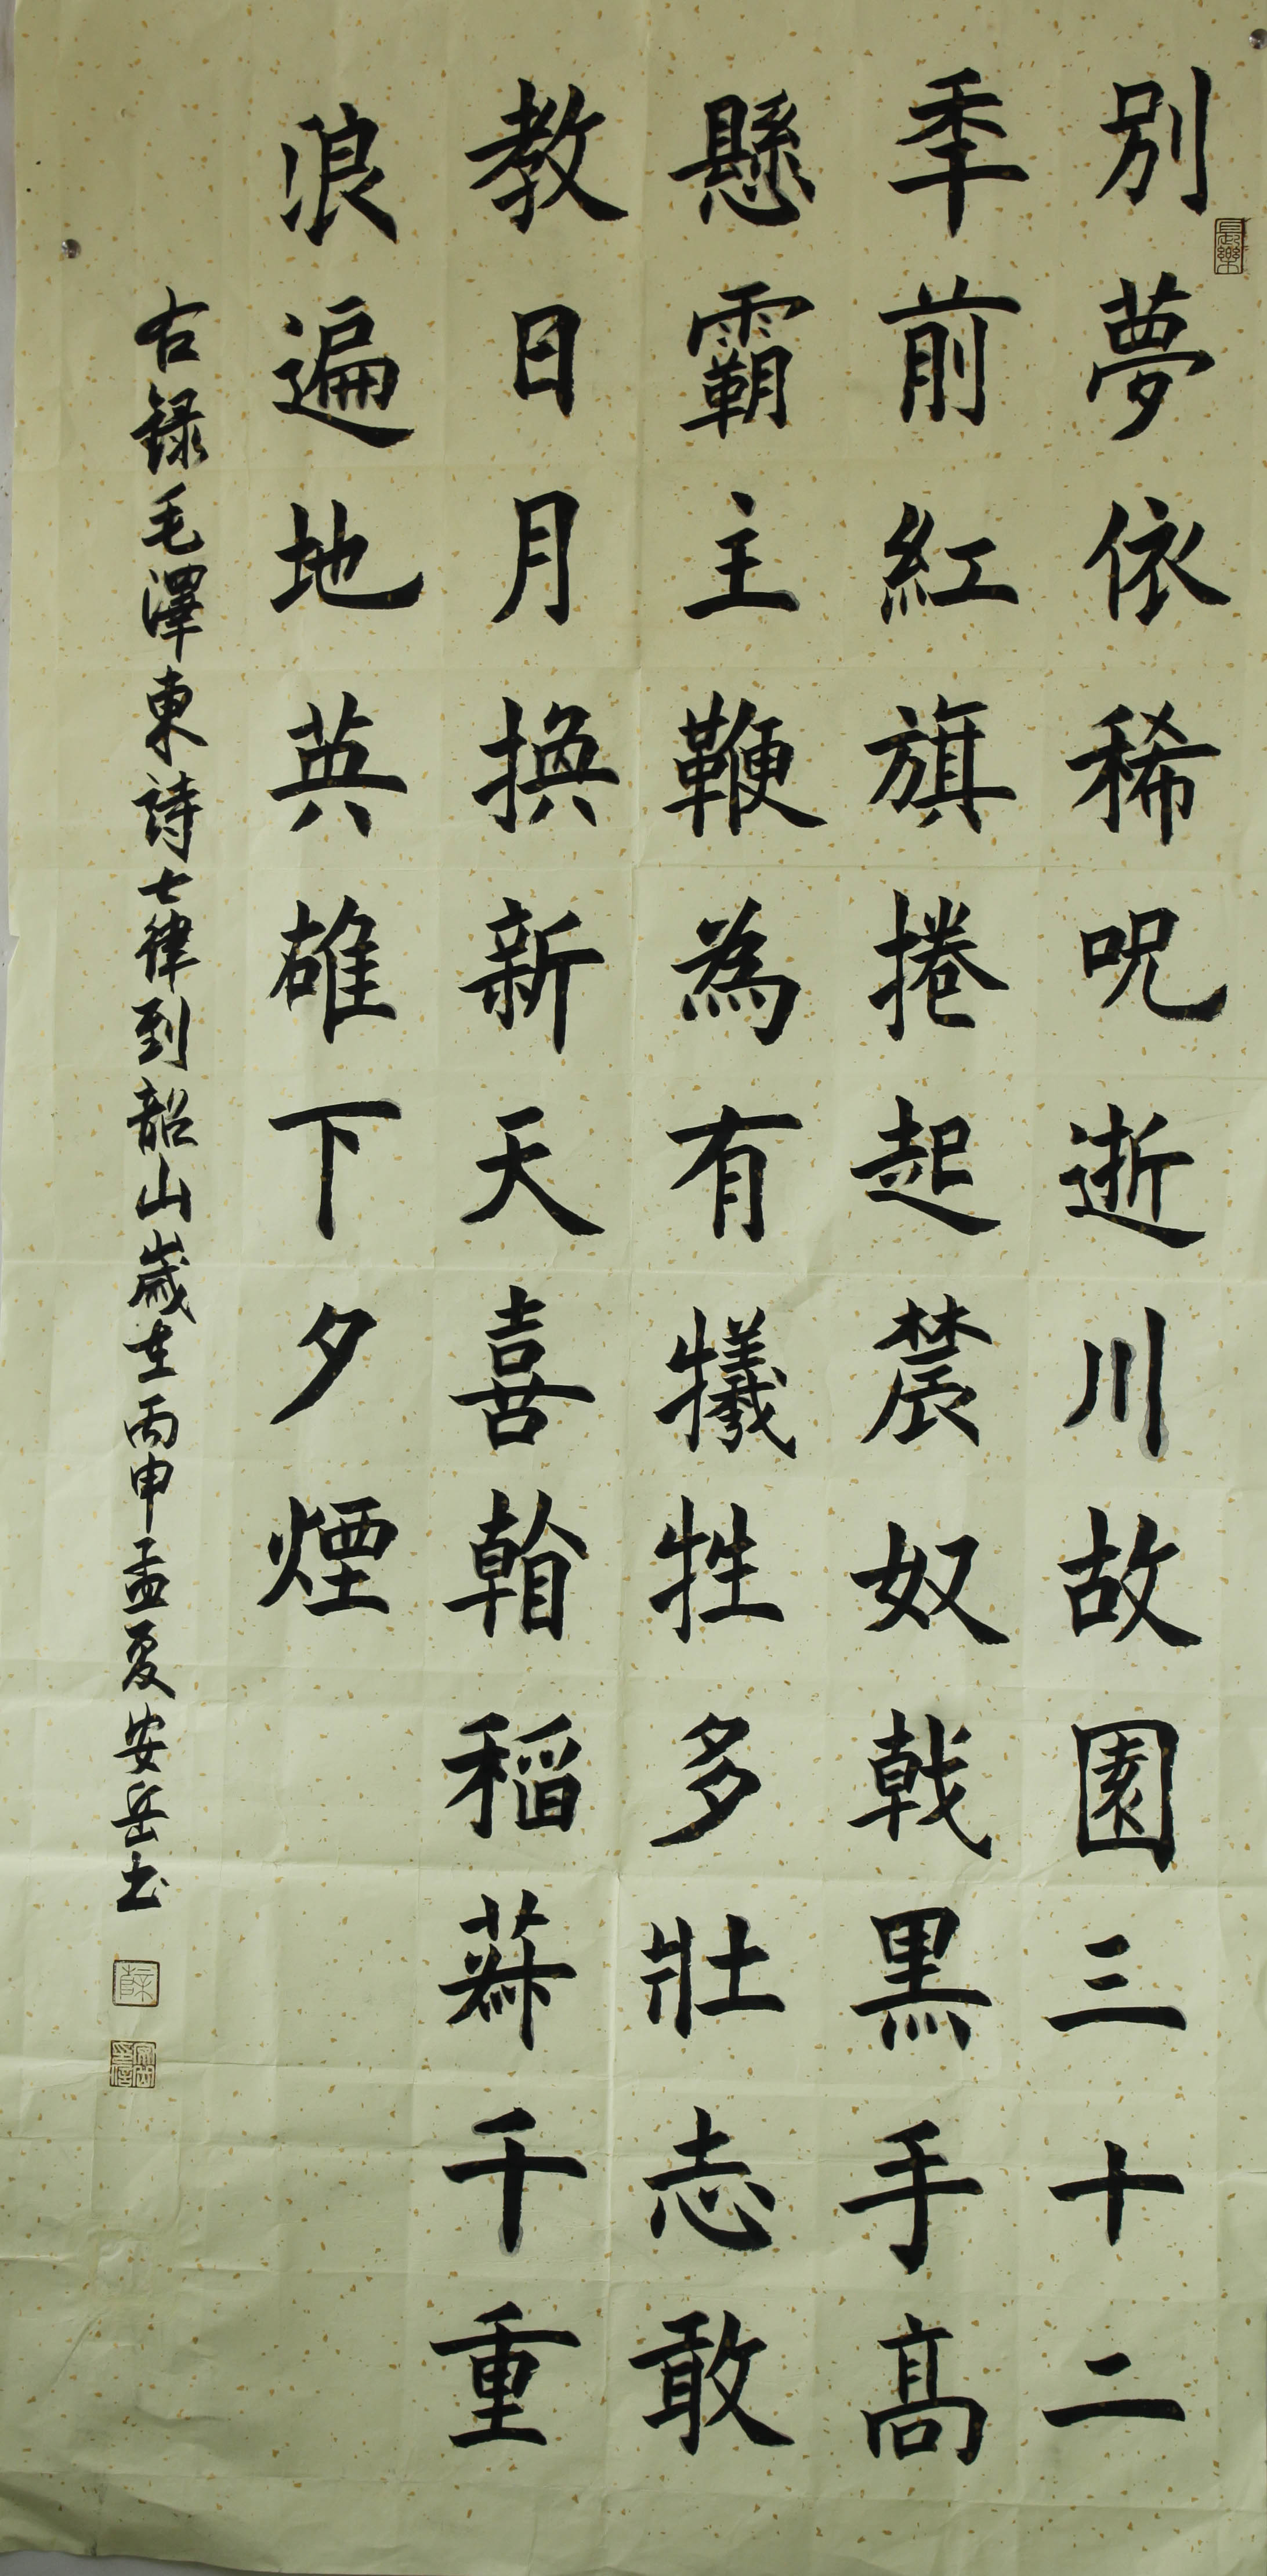 別夢依稀呪逝川故園三十二
季前紅旗捲起農奴戟黑手高
懸霸主鞭為有犧牲多壯志敢
教日月換新天喜看稻菽千重
浪遍地英雄下夕煙
右録毛澤東詩七律到韶山歲在丙申孟夏安岳书